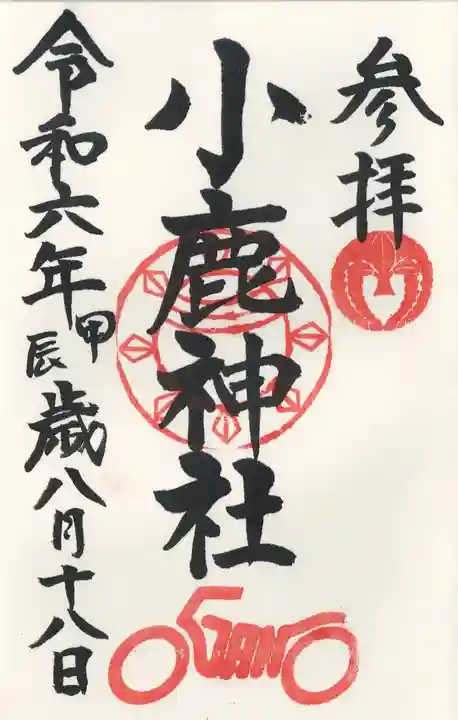 参拝
小鹿神社
令和六年甲辰歳八月十八日
OGANO